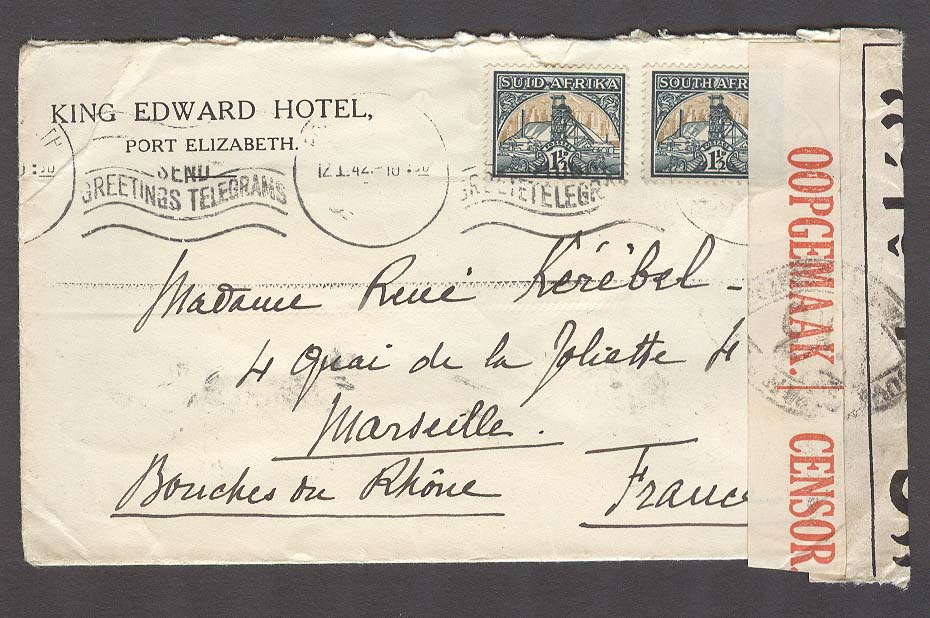 KING EDWARD HOTEL,
PORT ELIZABETH.
SUID-AFRIKA
1½
SOUTH AFR
1½
SEND
GREETINGS TELEGRAMS
12.I.42.-10:30
Madame René Kérébel -
4 Quai de la Joliette 4
Marseille.
Bouches du Rhône
France
OOPGEMAAK. | CENSOR.